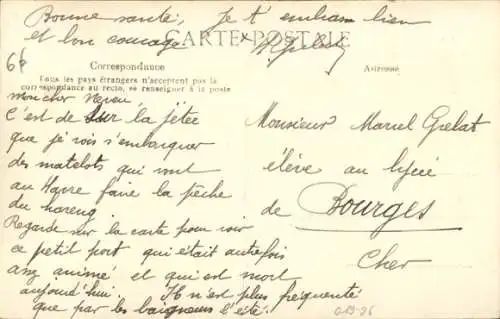 Bonne santé, Je t'embrasse bien
et bon courage
CARTE POSTALE
Correspondance
Tous les pays étrangers n'acceptent pas la
correspondance au recto, se renseigner à la poste
Adresse
mon cher neveu,
C'est de sur la jetée
que je vois s'embarquer
des matelots qui vont
au Havre faire la pêche
du hareng
Regarde sur la carte pour voir
ce petit port qui était autrefois
assez animé et qui est mort
aujourd'hui. Il n'est plus fréquenté
que par les baigneurs l'été.
Monsieur Marcel Grelat
élève au lycée
de Bourges
Cher